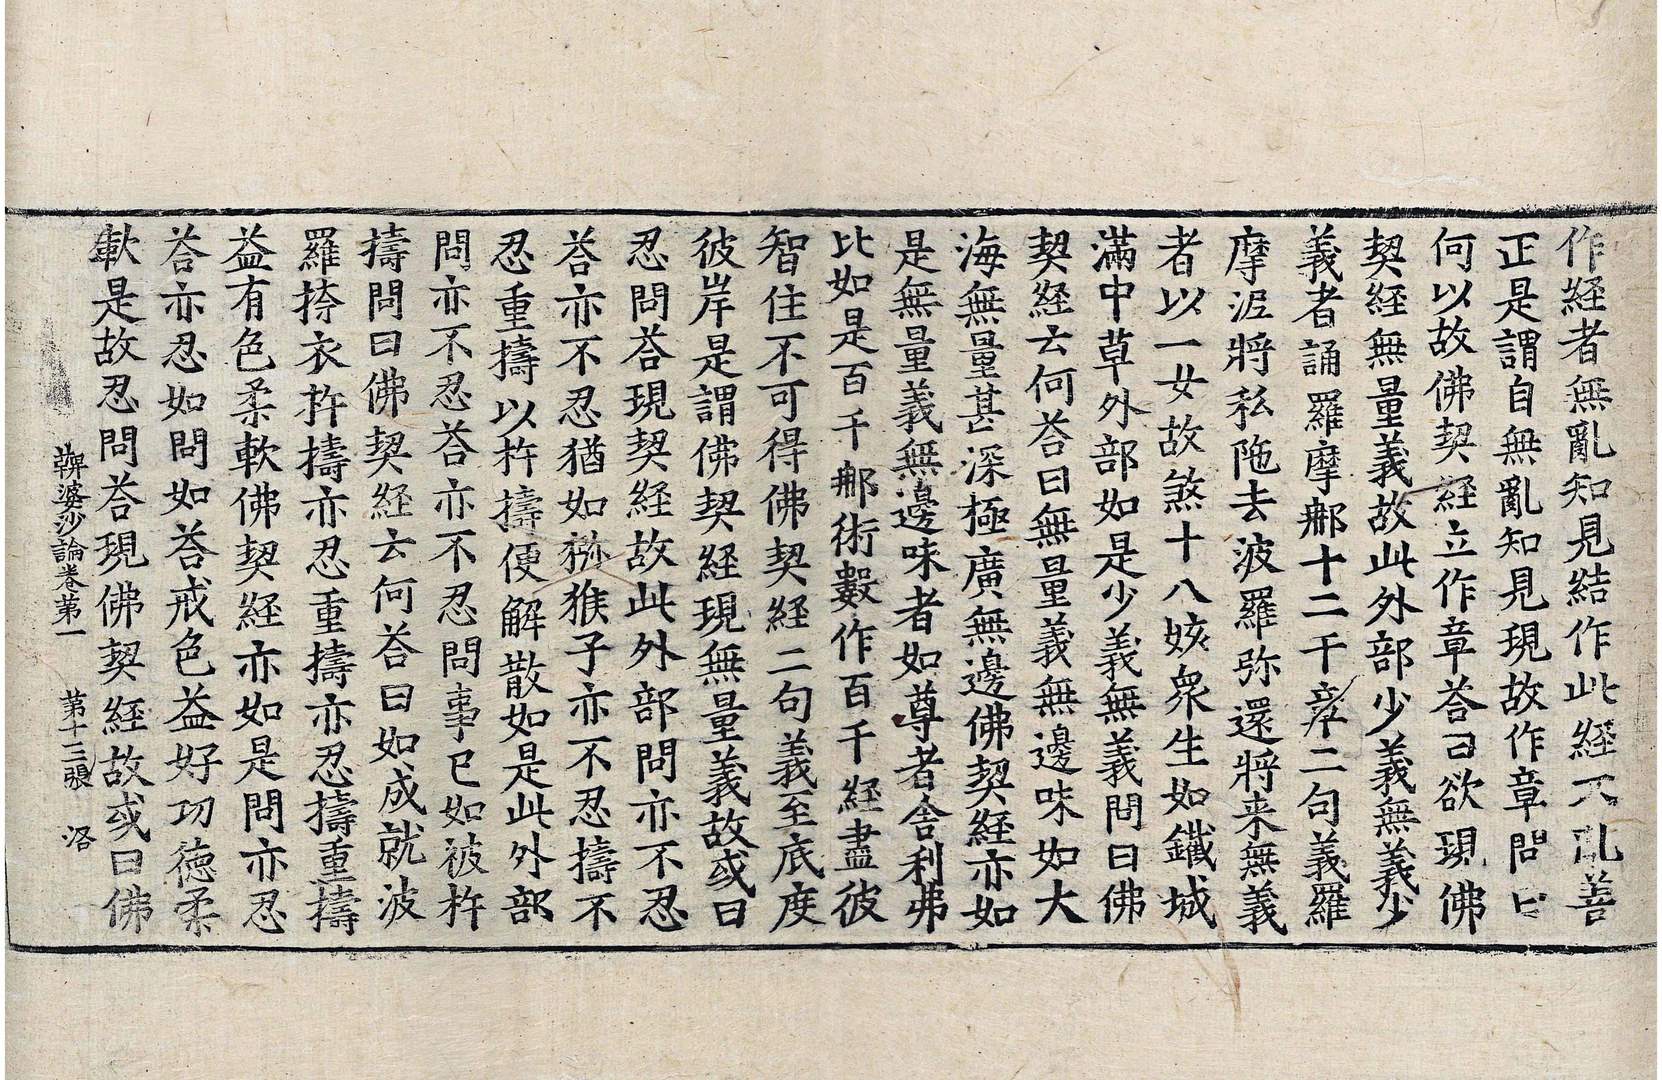 作経者無亂知見結作此経不乱善
正是謂自無亂知見現故作章問曰
何以故佛契経立作章荅曰欲現佛
契経無量義故此外部少義無義少
義者誦羅摩䣕十二千章二句義羅
摩泥將私陁去波羅弥還將来無義
者以一女故煞十八姟衆生如鐵城
滿中草外部如是少義無義問曰佛
契経云何荅曰無量義無邊味如大
海無量甚深極廣無邊佛契経亦如
是無量義無邊味者如尊者舎利弗
比如是百千䣕術數作百千経盡彼
智住不可得佛契経二句義至底度
彼岸是謂佛契経現無量義故或曰
忍問荅現契経故此外部問亦不忍
荅亦不忍猶如獼猴子亦不忍擣不
忍重擣以杵擣便解散如是此外部
問亦不忍荅亦不忍問事已如被杵
擣問曰佛契経云何荅曰如成就波
羅捺衣杵擣亦忍重擣亦忍擣重擣
益有色柔軟佛契経亦如是問亦忍
荅亦忍如問如荅戒色益好功徳柔
軟是故忍問荅現佛契経故或曰佛
鞞婆沙論巻苐一　苐十三張　洛